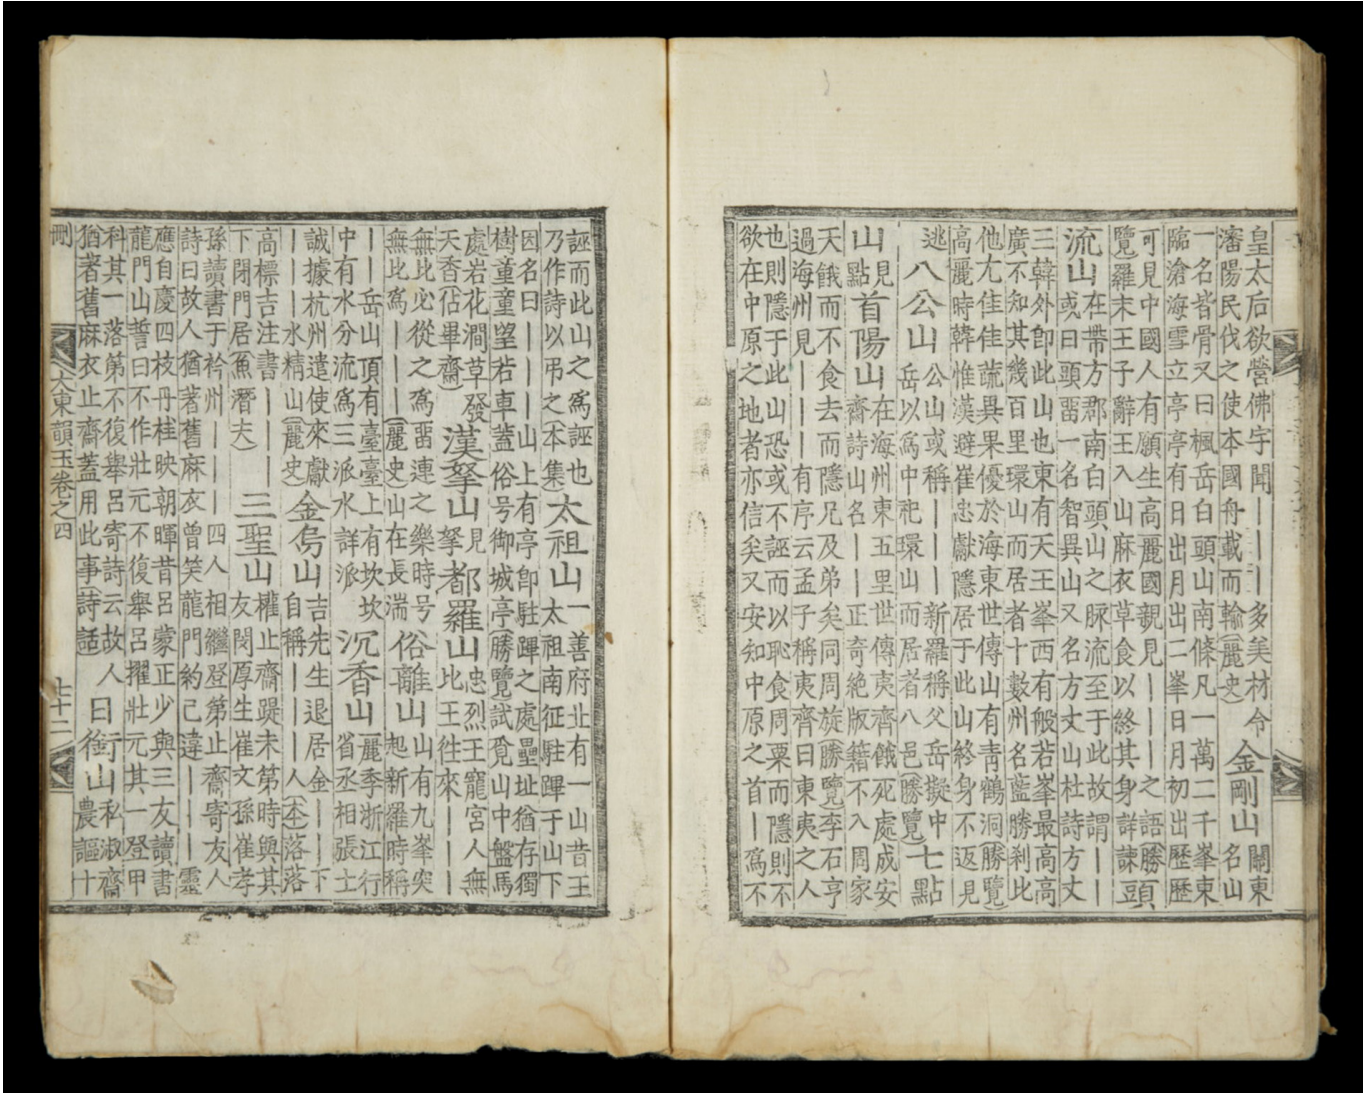 皇太后欲營佛宇聞｜｜｜多美材令
瀋陽民伐之使本國舟載而輸(麗史)
金剛山 關東
名山
一名皆骨又曰楓岳白頭山南條凡一萬二千峯東
臨滄海雪立亭亭有日出月出二峯日月初出歷歷
可見中國人有願生高麗國親見｜｜｜之語(勝
覽)羅末王子辭王入山麻衣草食以終其身詳諫
頭
流山 在帶方郡南白頭山之脉流至于此故謂｜｜
或曰頭畱一名智異山又名方丈山杜詩方丈
三韓外卽此山也東有天王峯西有般若峯最高高
廣不知其幾百里環山而居者十數州名藍勝刹此
他尤佳佳蔬異果優於海東世傳山有靑鶴洞(勝覽)
高麗時韓惟漢避崔忠獻隱居于此山終身不返見
逃
八公山 公山或稱｜｜｜新羅稱父岳擬中
岳以爲中祀環山而居者八邑(勝覽)
七點
山 見
點
首陽山 在海州東五里世傳夷齊餓死處成安
齋詩山名｜｜正奇絶版籍不入周家
天餓而不食去而隱兄及弟矣同周旋(勝覽)李石亨
過海州見｜｜｜有序云孟子稱夷齊曰東夷之人
也則隱于此山恐或不誣而以恥食周粟而隱則不
欲在中原之地者亦信矣又安知中原之首｜爲不
誣而此山之爲誣也
乃作詩以弔之(本集)
太祖山 一善府北有一山昔王
太祖南征駐蹕于山下
因名曰｜｜｜山上有亭卽駐蹕之處壘址猶存獨
樹童童望若車蓋俗号御城亭(勝覽)試覓山中盤馬
處岩花澗草發
天香(佔畢齋)
漢拏山 見
拏
都羅山 忠烈王寵宮人無
比王往來｜｜｜
無比必從之爲畱連之樂時号
無比爲｜｜｜(麗史)
俗離山 山有九峯突
起新羅時稱
｜｜岳山頂有臺臺上有坎坎
中有水分流爲三派水詳派
山在長湍
沉香山 麗季浙江行
省丞相張士
誠據杭州遣使來獻
｜｜｜水精山(麗史)
金烏山 吉先生退居金｜｜下
自稱｜｜｜人(本)落落
高標吉注書｜｜｜
下閉門居(魚潛夫)
三聖山 權止齋踶未第時與其
友閔厚生崔文孫崔孝
孫讀書于衿州｜｜｜四人相繼登第止齋寄友人
詩曰故人猶著舊麻衣曾笑龍門約己違｜｜｜靈
應自慶四枝丹桂映朝暉昔呂蒙正少與三友讀書
龍門山誓曰不作壯元不復擧呂擢壯元其一登甲
科其一落第不復擧呂寄詩云故人
猶著舊麻衣止齋蓋用此事(詩話)
曰
衍山 私淑齋
農謳十
刪
大東韻玉卷之四
七十二